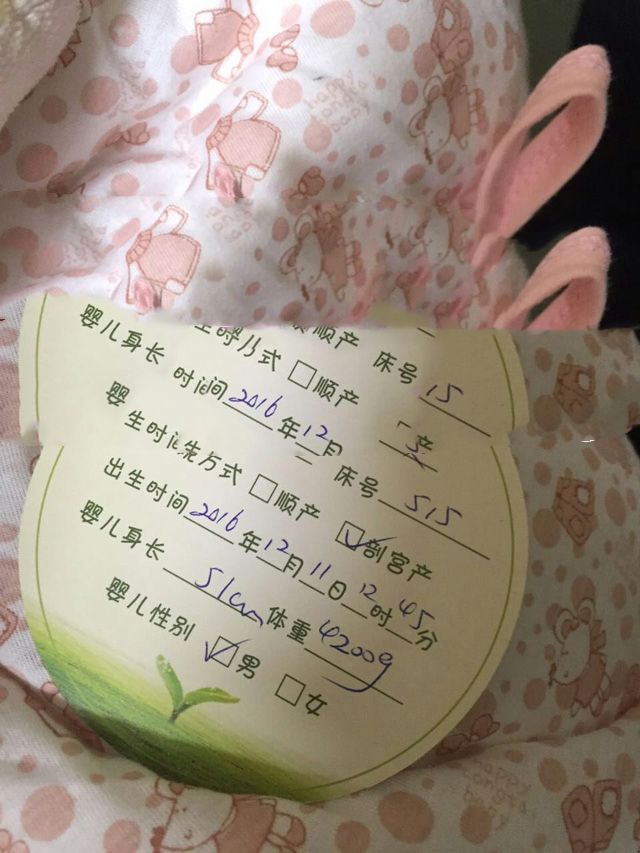 顺产 床号 15
式 □顺产
婴儿身长
时间 2016 年 12 月
床号 515
方式 □顺产 ☑剖宫产
出生时间 2016 年 12 月 11 日 12 时 45 分
婴儿身长 51cm 体重 4200g
婴儿性别 ☑男 □女